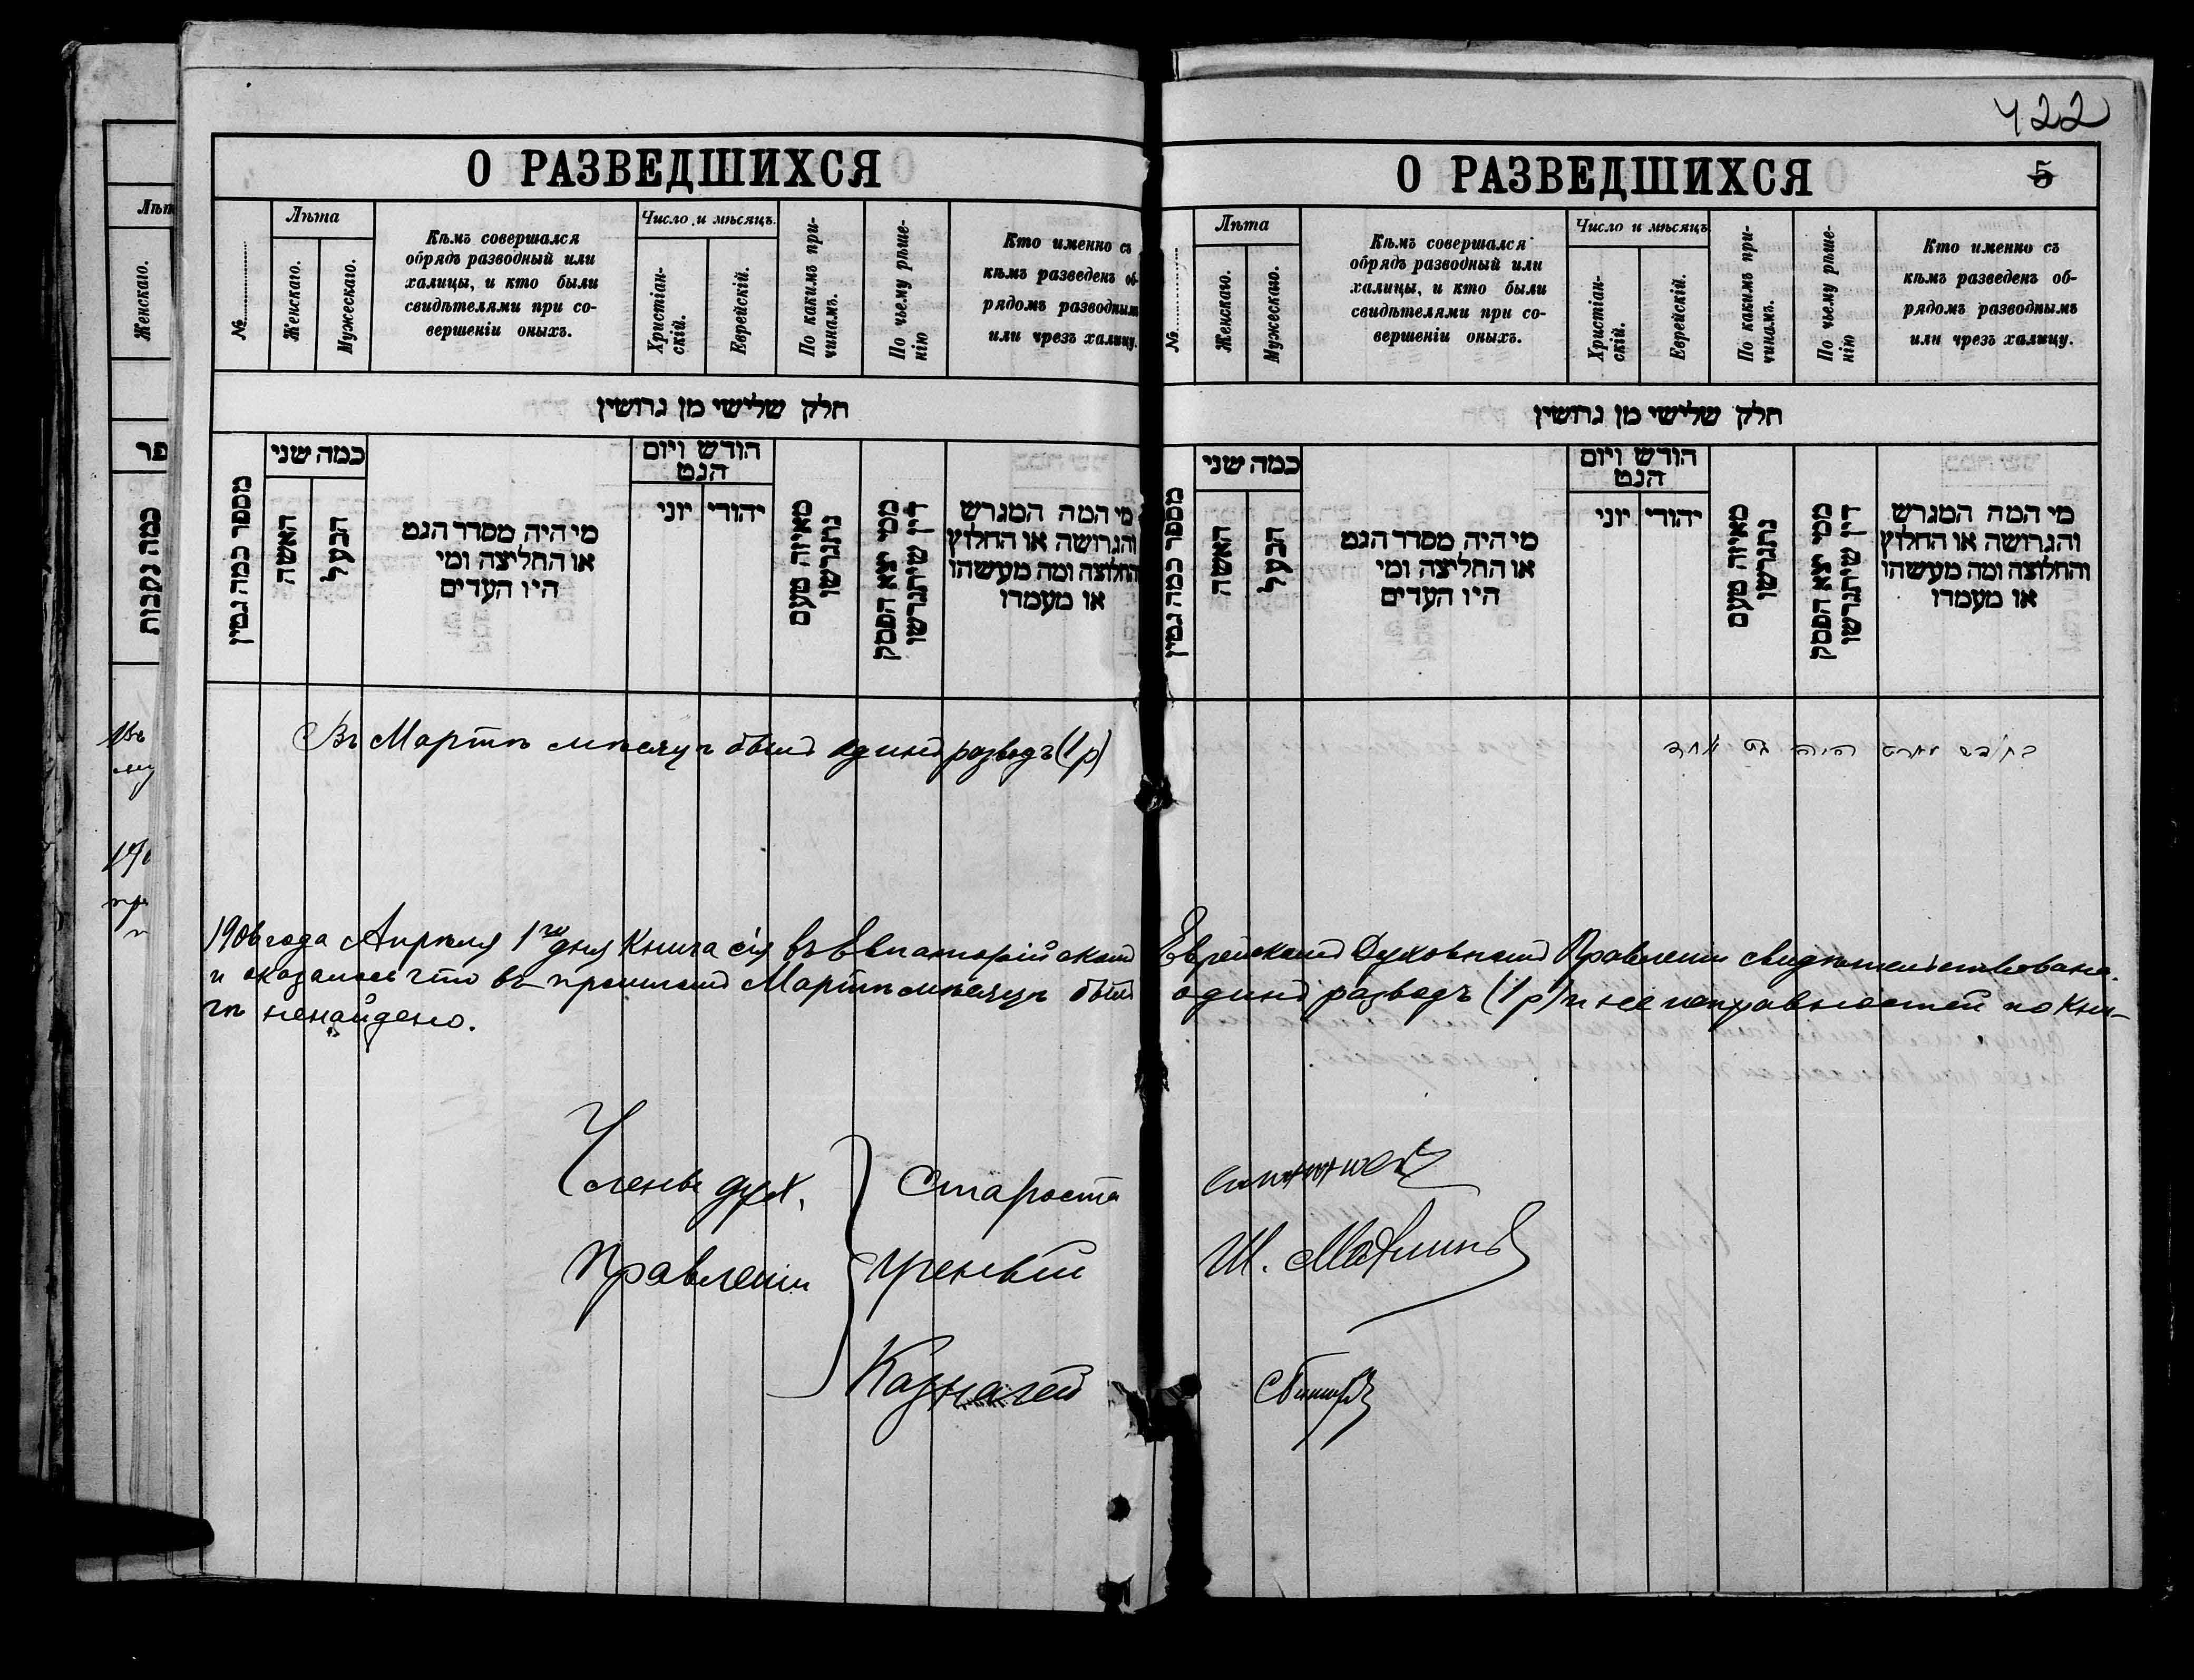 422
О РАЗВЕДШИХСЯ
№
Лѣта
Женскаго.
Мужескаго.
Кѣмъ совершался
обрядъ разводный или
халицы, и кто были
свидѣтелями при со-
вершеніи оныхъ.
Число и мѣсяцъ.
Христіан-
скій.
Еврейскій.
По какимъ при-
чинамъ.
По чьему рѣше-
нію
Кто именно съ
кѣмъ разведенъ об-
рядомъ разводным
или чрезъ халицу.
חלק שלישי מן גרושין
מספר כמה גטין
כמה שני
האשה
הבעל
מי היה מסדר הגט
או החליצה ומי
היו העדים
חודש ויום
הגט
יוני
יהודי
מאיזה טעם
נתגרשו
ממי יצא הפסק
דין שיתגרשו
מי המה המגרש
והגרושה או החלוץ
והחלוצה ומה מעשהו
או מעמדו
О РАЗВЕДШИХСЯ
5
№
Лѣта
Женскаго.
Мужескаго.
Кѣмъ совершался
обрядъ разводный или
халицы, и кто были
свидѣтелями при со-
вершеніи оныхъ.
Число и мѣсяцъ
Христіан-
скій.
Еврейскій.
По какимъ при-
чинамъ.
По чьему рѣше-
нію
Кто именно съ
кѣмъ разведенъ об-
рядомъ разводнымъ
или чрезъ халицу.
חלק שלישי מן גרושין
מספר כמה גטין
כמה שני
האשה
הבעל
מי היה מסדר הגט
או החליצה ומי
היו העדים
חודש ויום
הגט
יוני
יהודי
מאיזה טעם
נתגרשו
ממי יצא הפסק
דין שיתגרשו
מי המה המגרש
והגרושה או החלוץ
והחלוצה ומה מעשהו
או מעמדו
Женскаго.
פר
כמה נקבות
Въ Мартѣ мѣсяцѣ былъ одинъ разводъ (1 р)
בחודש מארט היה גט אחד
1906 года Апрѣля 1го дня Книга сія въ Евпаторійскомъ Еврейскомъ Духовномъ Правленіи свидѣтельствована
и оказалось что въ прошломъ Мартѣ мѣсяцѣ былъ одинъ разводъ (1 р) и неисправностей по Кни-
гѣ ненайдено.
Члены дух.
Правленіи
Староста
Ученый
Ш.
Казначей